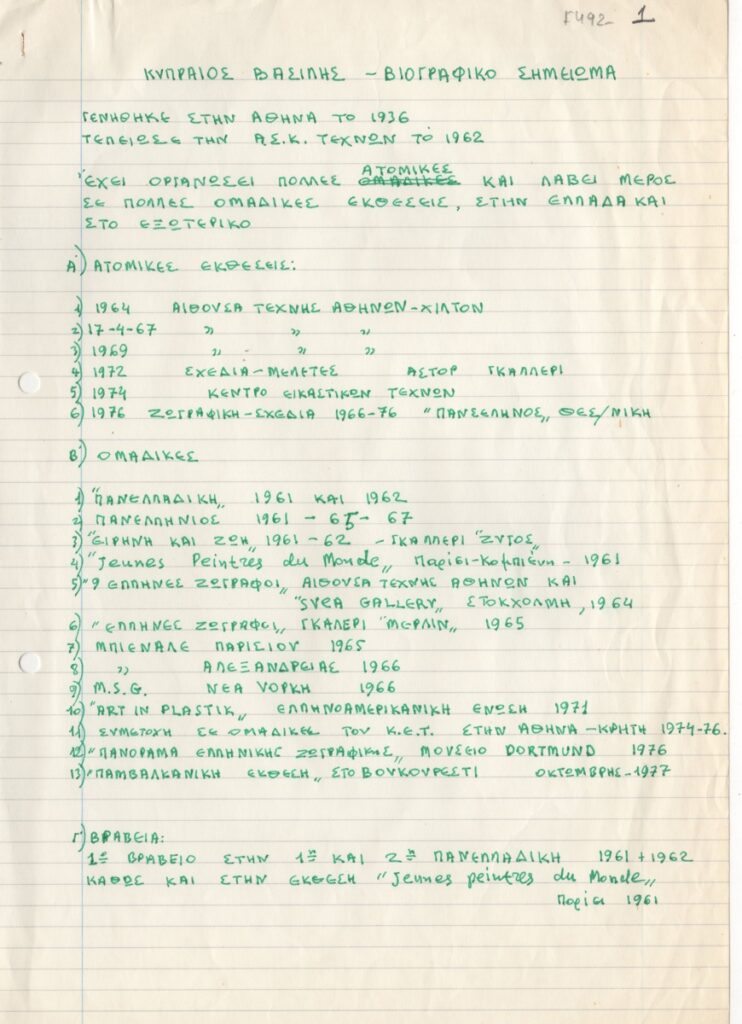 Γ492 1
ΚΥΠΡΑΙΟΣ ΒΑΣΙΛΗΣ - ΒΙΟΓΡΑΦΙΚΟ ΣΗΜΕΙΩΜΑ
ΓΕΝΗΘΗΚΕ ΣΤΗΝ ΑΘΗΝΑ ΤΟ 1936
ΤΕΛΕΙΩΣΕ ΤΗΝ Α.Σ.Κ. ΤΕΧΝΩΝ ΤΟ 1962
ΑΤΟΜΙΚΕΣ
ΈΧΕΙ ΟΡΓΑΝΩΣΕΙ ΠΟΛΛΕΣ ΟΜΑΔΙΚΕΣ ΚΑΙ ΛΑΒΕΙ ΜΕΡΟΣ
ΣΕ ΠΟΛΛΕΣ ΟΜΑΔΙΚΕΣ ΕΚΘΕΣΕΙΣ, ΣΤΗΝ ΕΛΛΑΔΑ ΚΑΙ
ΣΤΟ ΕΞΩΤΕΡΙΚΟ
Α) ΑΤΟΜΙΚΕΣ ΕΚΘΕΣΕΙΣ:
1) 1964 ΑΙΘΟΥΣΑ ΤΕΧΝΗΣ ΑΘΗΝΩΝ-ΧΙΛΤΟΝ
2) 17-4-67 " " "
3) 1969 " - " "
4) 1972 ΣΧΕΔΙΑ-ΜΕΛΕΤΕΣ ΑΣΤΟΡ ΓΚΑΛΛΕΡΙ
5) 1974 ΚΕΝΤΡΟ ΕΙΚΑΣΤΙΚΩΝ ΤΕΧΝΩΝ
6) 1976 ΖΩΓΡΑΦΙΚΗ-ΣΧΕΔΙΑ 1966-76 "ΠΑΝΣΕΛΗΝΟΣ" ΘΕΣ/ΝΙΚΗ
Β) ΟΜΑΔΙΚΕΣ
1) "ΠΑΝΕΛΛΑΔΙΚΗ" 1961 ΚΑΙ 1962
2) ΠΑΝΕΛΛΗΝΙΟΣ 1961 - 65 - 67
3) "ΕΙΡΗΝΗ ΚΑΙ ΖΩΗ" 1961-62 - ΓΚΑΛΛΕΡΙ "ΖΥΓΟΣ"
4) "Jeunes Peintres du Monde" Παρίσι-Κομπιένη - 1961
5) "9 ΕΛΛΗΝΕΣ ΖΩΓΡΑΦΟΙ" ΑΙΘΟΥΣΑ ΤΕΧΝΗΣ ΑΘΗΝΩΝ ΚΑΙ
"SVEA GALLERY" ΣΤΟΚΧΟΛΜΗ, 1964
6) "ΕΛΛΗΝΕΣ ΖΩΓΡΑΦΟΙ" ΓΚΑΛΕΡΙ "ΜΕΡΛΙΝ" 1965
7) ΜΠΙΕΝΑΛΕ ΠΑΡΙΣΙΟΥ 1965
8) " ΑΛΕΞΑΝΔΡΕΙΑΣ 1966
9) M.S.G. ΝΕΑ ΥΟΡΚΗ 1966
10) "ART IN PLASTIK" ΕΛΛΗΝΟΑΜΕΡΙΚΑΝΙΚΗ ΕΝΩΣΗ 1971
11) ΣΥΜΕΤΟΧΗ ΣΕ ΟΜΑΔΙΚΕΣ ΤΟΥ Κ.Ε.Τ. ΣΤΗΝ ΑΘΗΝΑ-ΚΡΗΤΗ 1974-76.
12) "ΠΑΝΟΡΑΜΑ ΕΛΛΗΝΙΚΗΣ ΖΩΓΡΑΦΙΚΗΣ" ΜΟΥΣΕΙΟ DORTMUND 1976
13) "ΠΑΜΒΑΛΚΑΝΙΚΗ ΕΚΘΕΣΗ" ΣΤΟ ΒΟΥΚΟΥΡΕΣΤΙ ΟΚΤΩΜΒΡΗΣ-1977
Γ) ΒΡΑΒΕΙΑ:
1ο ΒΡΑΒΕΙΟ ΣΤΗΝ 1η ΚΑΙ 2η ΠΑΝΕΛΛΑΔΙΚΗ 1961+1962
ΚΑΘΩΣ ΚΑΙ ΣΤΗΝ ΕΚΘΕΣΗ "Jeunes peintres du Monde"
Παρίσι 1961